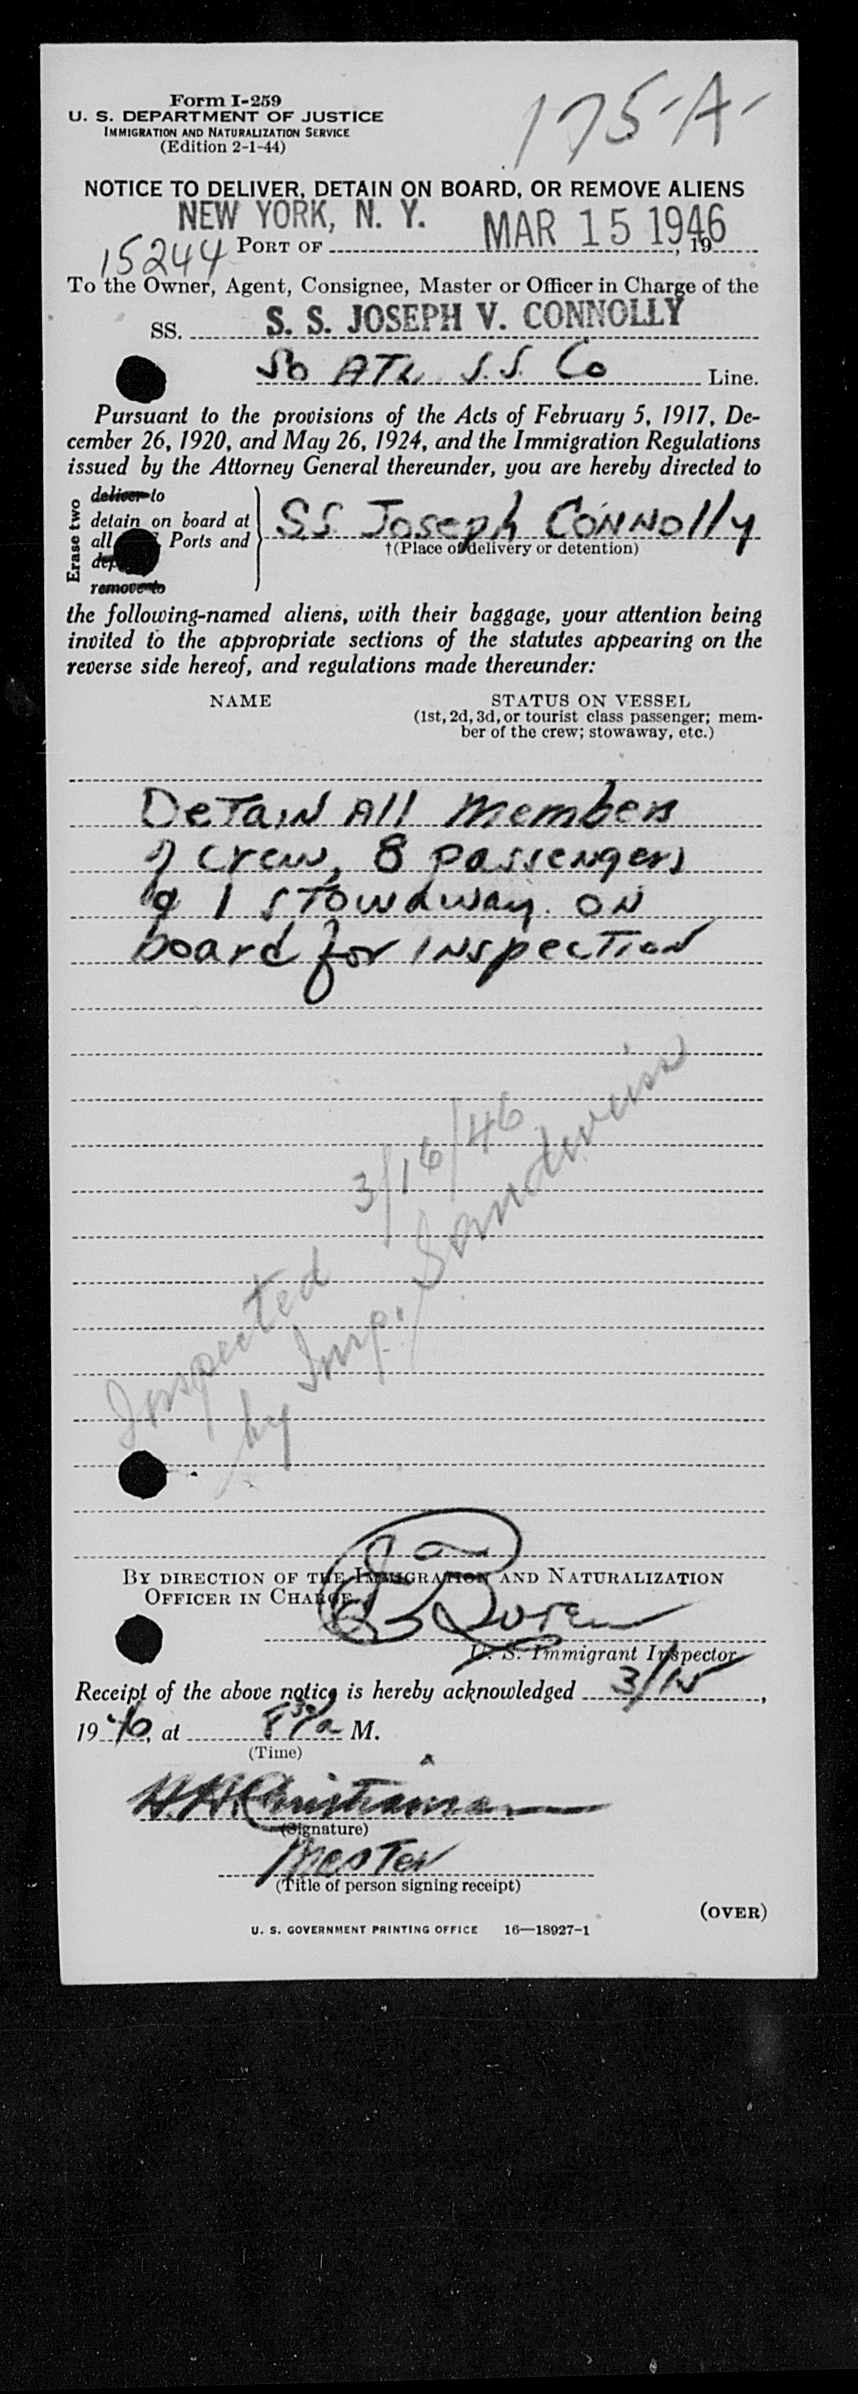 Form I-259
U. S. DEPARTMENT OF JUSTICE
IMMIGRATION AND NATURALIZATION SERVICE
(Edition 2-1-44)
175-A-
NOTICE TO DELIVER, DETAIN ON BOARD, OR REMOVE ALIENS
NEW YORK, N. Y. MAR 15 1946
15244 PORT OF , 19
To the Owner, Agent, Consignee, Master or Officer in Charge of the
SS. S. S. JOSEPH V. CONNOLLY
So ATL. S.S. Co Line.
Pursuant to the provisions of the Acts of February 5, 1917, De-
cember 26, 1920, and May 26, 1924, and the Immigration Regulations
issued by the Attorney General thereunder, you are hereby directed to
Erase two
deliver to
detain on board at
all Ports and
remove to
SS Joseph CONNOlly
†(Place of delivery or detention)
the following-named aliens, with their baggage, your attention being
invited to the appropriate sections of the statutes appearing on the
reverse side hereof, and regulations made thereunder:
NAME STATUS ON VESSEL
(1st, 2d, 3d, or tourist class passenger; mem-
ber of the crew; stowaway, etc.)
DeTaiN All Members
of crew, 8 passengers
& 1 STowaway. ON
board for INspecTion
Inspected 3/16/46
by Imp. Sandweiss
BY DIRECTION OF THE IMMIGRATION AND NATURALIZATION
OFFICER IN CHARGE.
U. S. Immigrant Inspector
Receipt of the above notice is hereby acknowledged 3/15,
1946, at 8 30/a M.
(Time)
(Signature)
Master
(Title of person signing receipt)
(OVER)
U. S. GOVERNMENT PRINTING OFFICE 16—18927-1